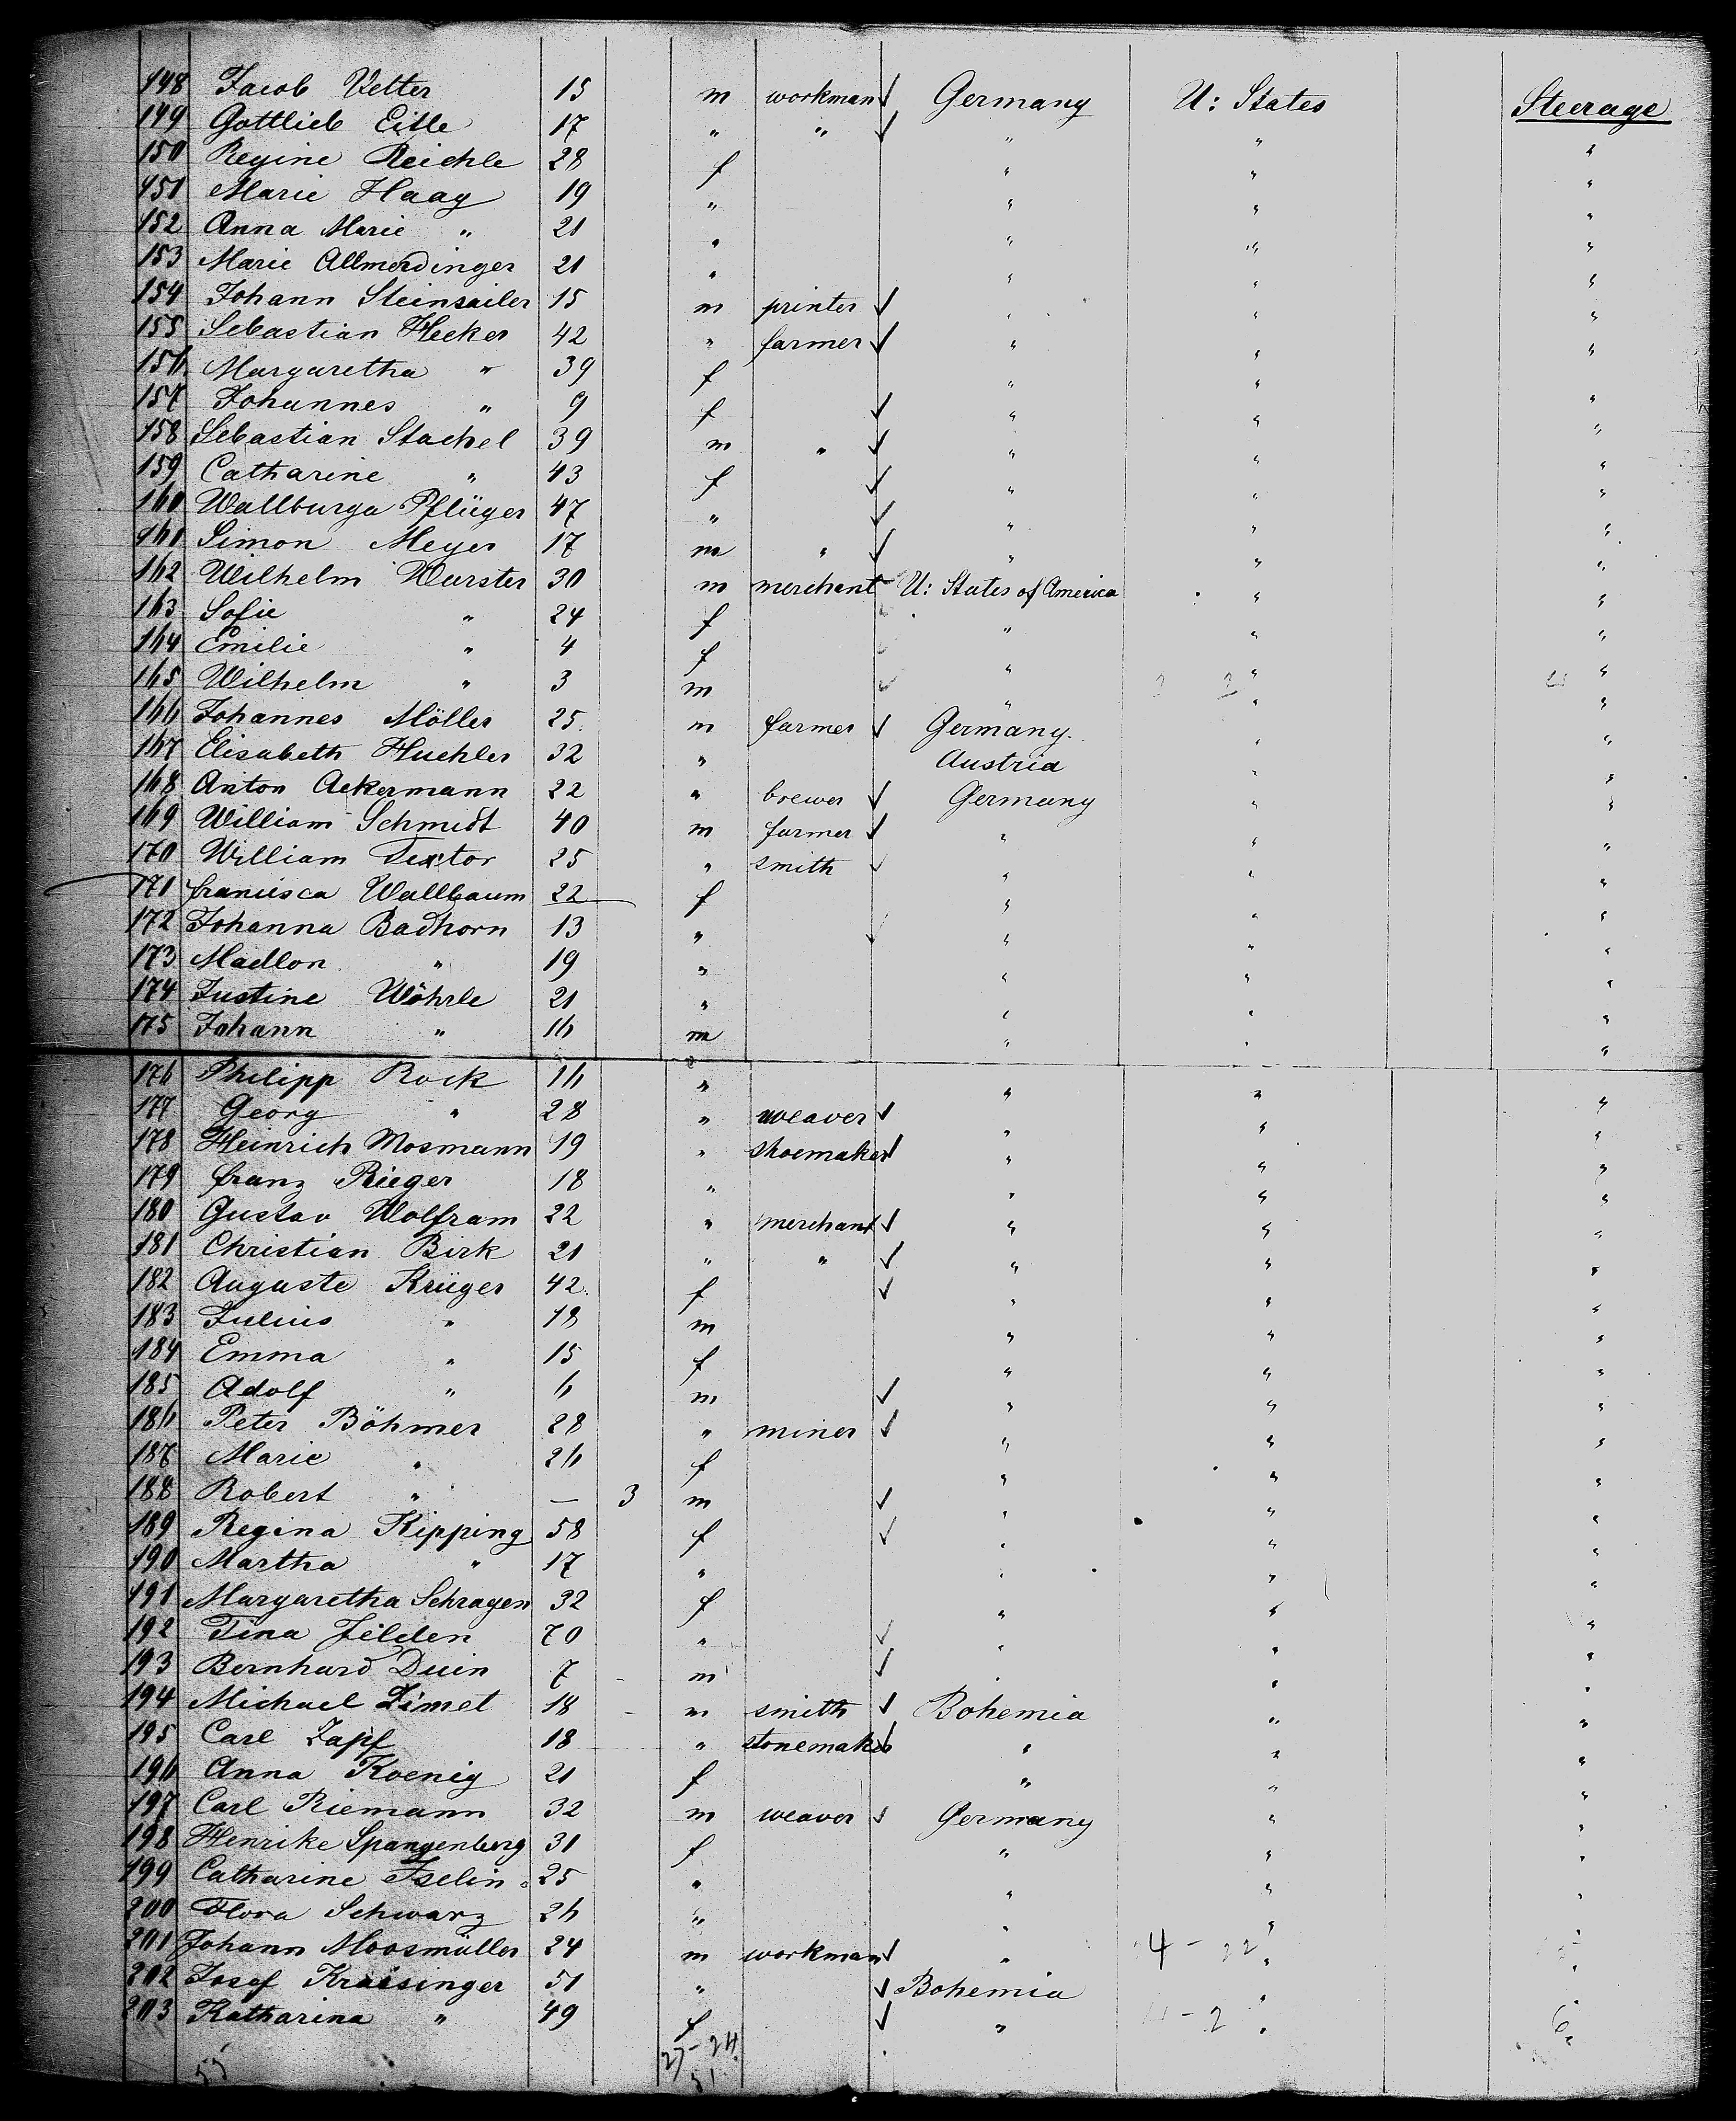 148 Jacob Vetter 15 m workman Germany U: States Steerage
149 Gottlieb Eitle 17 " " " " "
150 Regine Reichle 28 f " " "
151 Marie Haag 19 " " " "
152 Anna Marie " 21 " " " "
153 Marie Allmerdinger 21 " " " "
154 Johann Steinsailer 15 m printer " " "
155 Sebastian Hecker 42 " farmer " " "
156 Margaretha " 39 f " " "
157 Johannes " 9 f " " "
158 Sebastian Stachel 39 m " " " "
159 Catharine " 43 f " " "
160 Wallburga Pflüger 47 " " " "
161 Simon Meyer 17 m " " " "
162 Wilhelm Wurster 30 m merchant U: States of America " "
163 Sofie " 24 f " " "
164 Emilie " 4 f " " "
165 Wilhelm " 3 m " " "
166 Johannes Möller 25 m farmer Germany " "
167 Elisabeth Huehler 32 " Austria " "
168 Anton Ackermann 22 " brewer Germany " "
169 William Schmidt 40 m farmer " " "
170 William Textor 25 " smith " " "
171 francisca Wallbaum 22 f " " "
172 Johanna Badhorn 13 " " " "
173 Madlon " 19 " " " "
174 Justine Wöhrle 21 " " " "
175 Johann " 16 m " " "
176 Philipp Rock 16 " " " "
177 Georg " 28 " weaver " " "
178 Heinrich Mosmann 19 " shoemaker " " "
179 franz Rieger 18 " " " "
180 Gustav Wolfram 22 " merchant " " "
181 Christian Birk 21 " " " " "
182 Auguste Krüger 42 f " " "
183 Julius " 18 m " " "
184 Emma " 15 f " " "
185 Adolf " 6 m " " "
186 Peter Böhmer 28 " miner " " "
187 Marie " 26 f " " "
188 Robert " — 3 m " " "
189 Regina Kipping 58 f " " "
190 Martha " 17 " " " "
191 Margaretha Schragen 32 f " " "
192 Tina Jelden 70 " " " "
193 Bernhard Duin 7 m " " "
194 Michael Zimet 18 m smith Bohemia " "
195 Carl Zapf 18 " stonemaker " " "
196 Anna Koenig 21 f " " "
197 Carl Riemann 32 m weaver Germany " "
198 Henrike Spangenberg 31 f " " "
199 Catharine Iselin 25 " " " "
200 Flora Schwarz 26 " " " "
201 Johann Moosmüller 24 m workman " " "
202 Josef Kraisinger 51 " Bohemia " "
203 Katharina " 49 f " " "
27-24
55 51